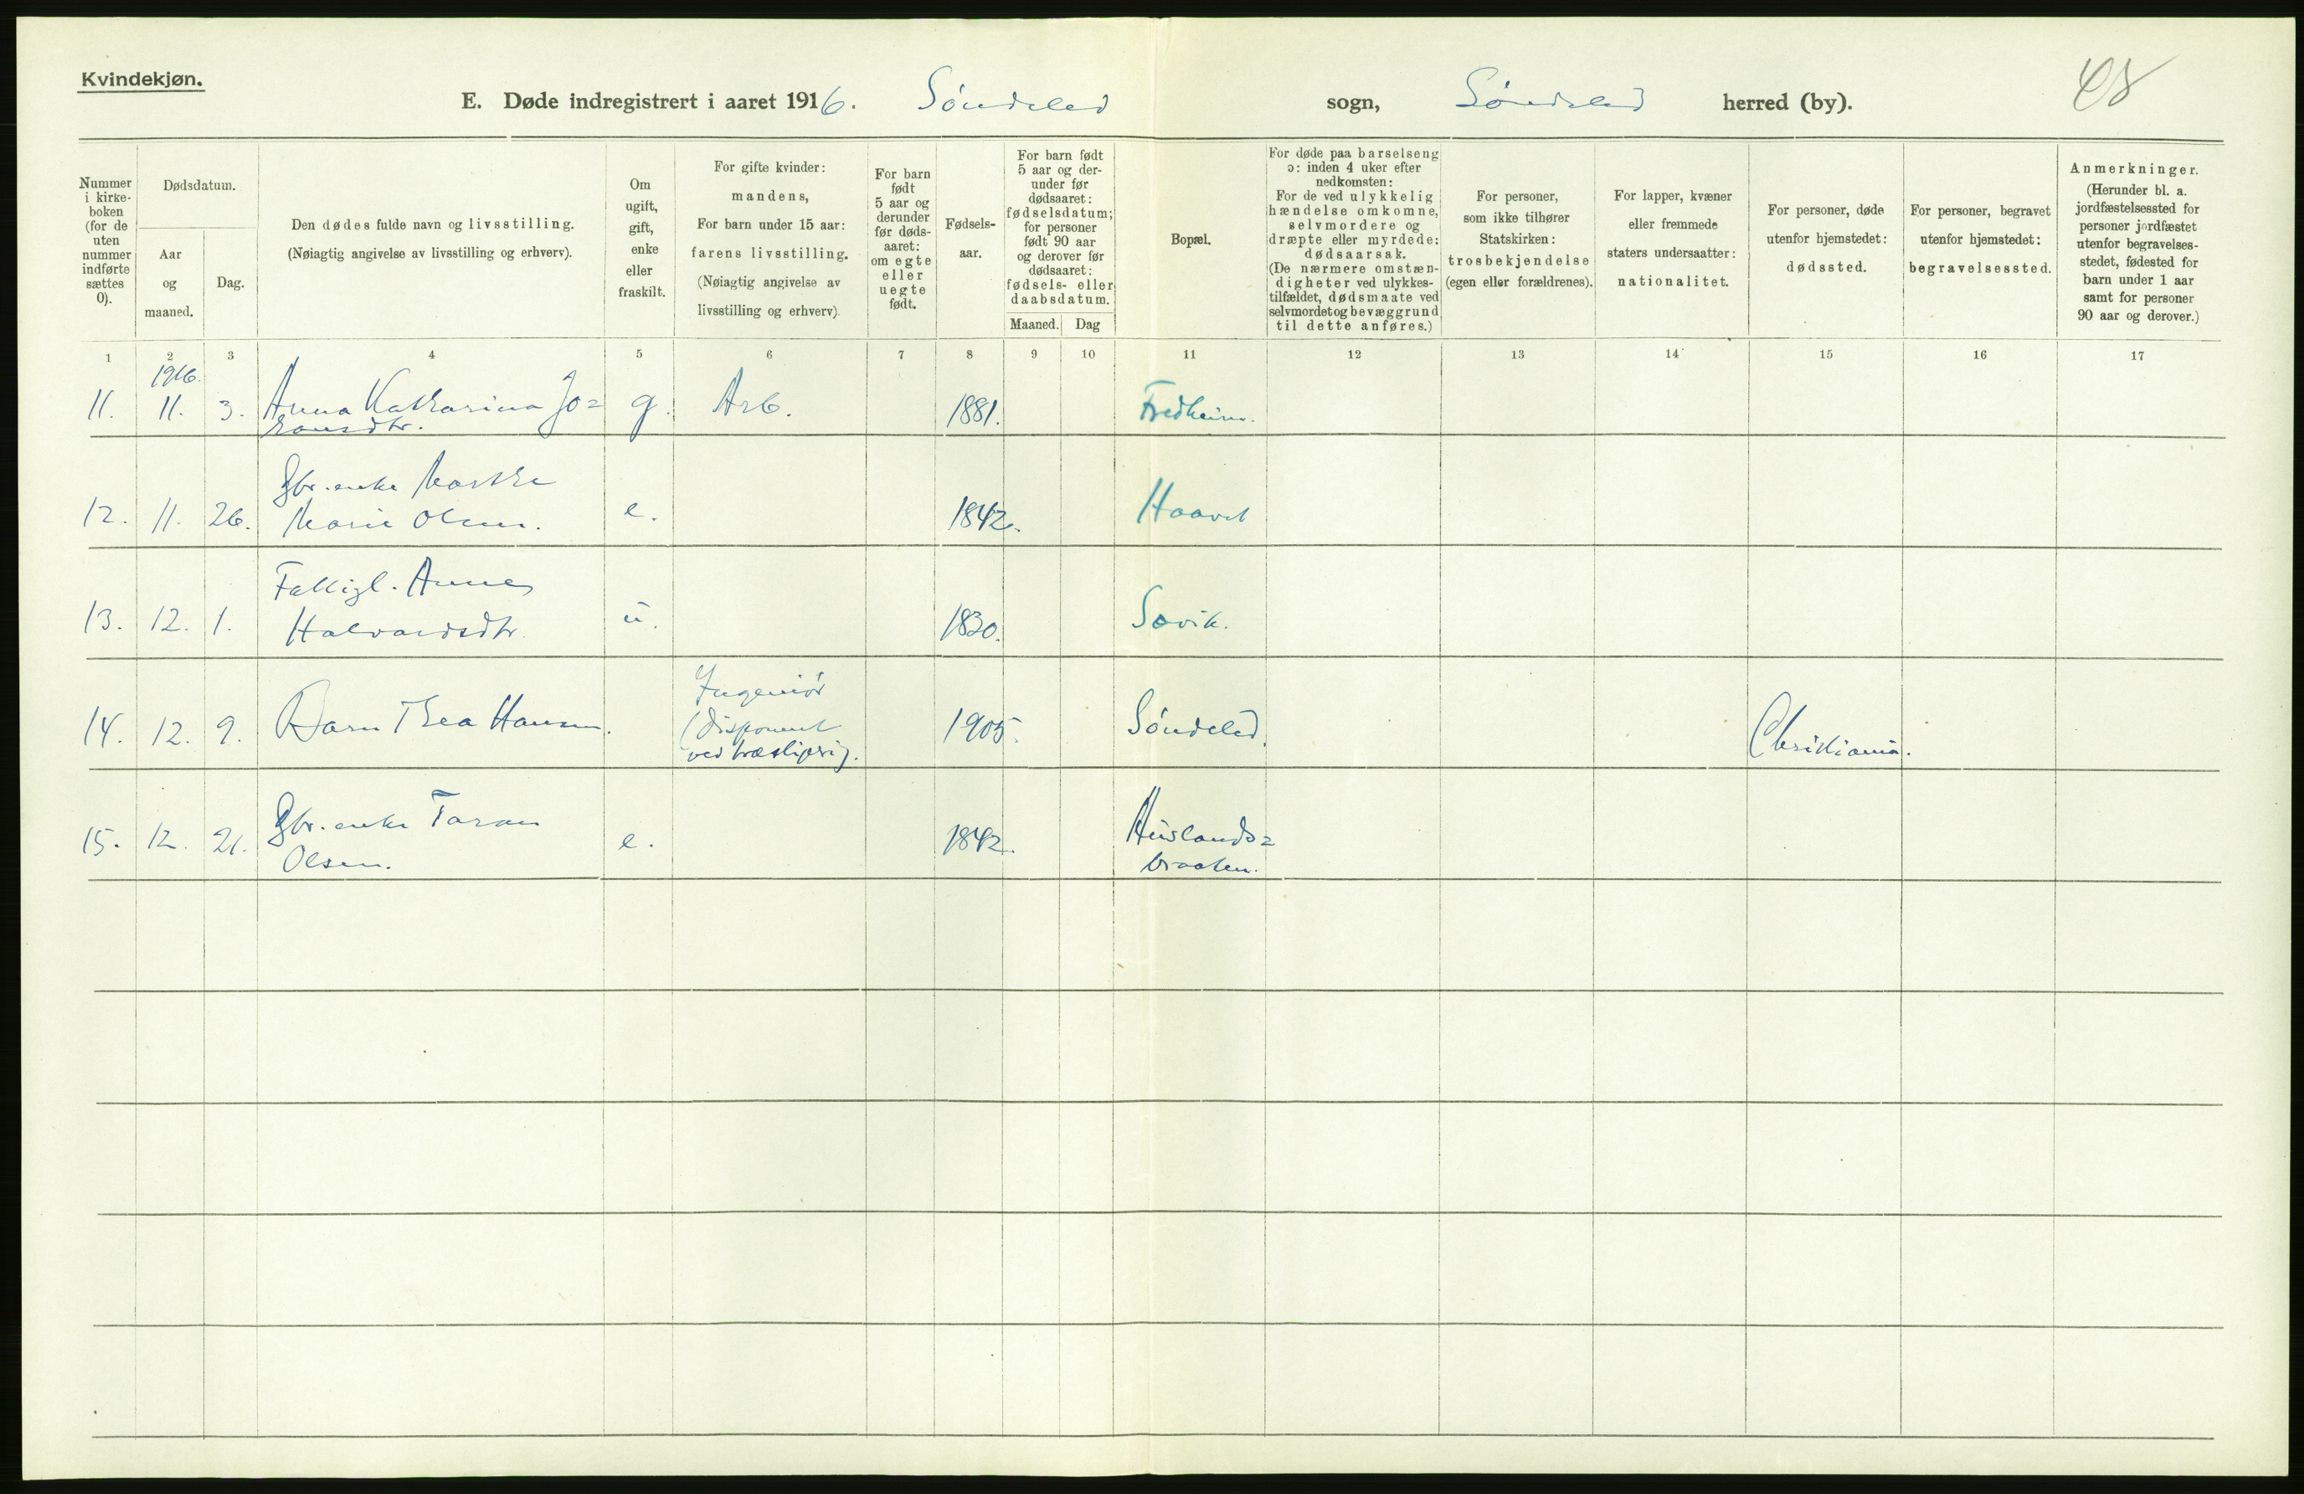 Kvindekjøn.
E. Døde indregistrert i aaret 1916. Søndeled sogn, Søndeled herred (by).
48
Nummer i kirke-boken (for de uten nummer indførte sættes 0).
Dødsdatum.
Aar og maaned.
Dag.
Den dødes fulde navn og livsstilling.
(Nøiagtig angivelse av livsstilling og erhverv).
Om ugift, gift, enke eller fraskilt.
For gifte kvinder: mandens,
For barn under 15 aar: farens livsstilling.
(Nøiagtig angivelse av livsstilling og erhverv)
For barn født 5 aar og derunder før døds-aaret: om egte eller uegte født.
Fødsels-aar.
For barn født 5 aar og der-under før dødsaaret: fødselsdatum; for personer født 90 aar og derover før dødsaaret: fødsels- eller daabsdatum.
Maaned. Dag
Bopæl.
For døde paa barselseng ɔ: inden 4 uker efter nedkomsten:
For de ved ulykkelig hændelse omkomne, selvmordere og dræpte eller myrdede: dødsaarsak.
(De nærmere omstæn-digheter ved ulykkes-tilfældet, dødsmaate ved selvmordet og bevæggrund til dette anføres.)
For personer, som ikke tilhører Statskirken: trosbekjendelse (egen eller forældrenes).
For lapper, kvæner eller fremmede staters undersaatter: nationalitet.
For personer, døde utenfor hjemstedet: dødssted.
For personer, begravet utenfor hjemstedet: begravelsessted.
Anmerkninger.
(Herunder bl. a. jordfæstelsessted for personer jordfæstet utenfor begravelses-stedet, fødested for barn under 1 aar samt for personer 90 aar og derover.)
1 2 3 4 5 6 7 8 9 10 11 12 13 14 15 16 17
1916.
11. 11. 3. Anna Katharina Jo= g. Arb. 1881. Fredheim.
hansdtr.
Gbr. enke Marthe
12. 11. 26. Marie Olsen. e. 1842. Haavet
Fattigl. Anne
13. 12. 1. Halvardsdtr. u. 1830. Sævik.
Ingeniør
14. 12. 9. Barn Thea Hansen. (disponent 1905. Søndeled. Christiania.
ved træsliperi).
Gbr. enke Taran
15. 12. 21. Olsen. e. 1842. Auslands=
braaten.